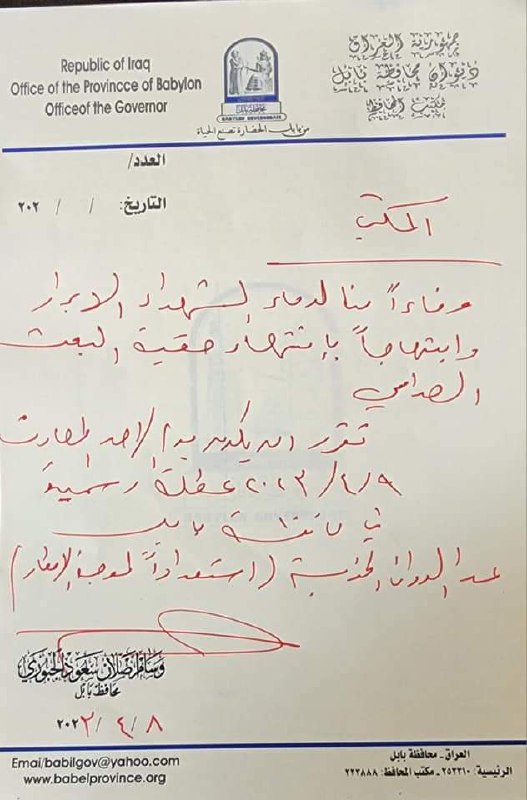 Republic of Iraq
Office of the Provincce of Babylon
Officeof the Governor
محافظة بابل
BABYLON GOVERNORATE
من بابل الحضارة نصنع الحياة
جمهورية العراق
ديوان محافظة بابل
مكتب المحافظ
العدد/
التاريخ: / / ٢٠٢
المكتب
وفاءاً منا لدماء الشهداء الابرار
وابتهاجاً بإنتهاء حقبة البعث
الصدامي
تقرر ان يكون يوم الاحد المصادف
٢٠٢٣/٤/٩ عطلة رسمية
في محافظة بابل
عدا الدوائر الخدمية (استعداداً لموجة الامطار)
وسام اصلان سعود الجبوري
محافظ بابل
٢٠٢٣/٤/٨
Emai/babilgov@yahoo.com
www.babelprovince.org
العراق - محافظة بابل
الرئيسية: ٢٥٣٣١٠ - مكتب المحافظ: ٢٢٣٨٨٨